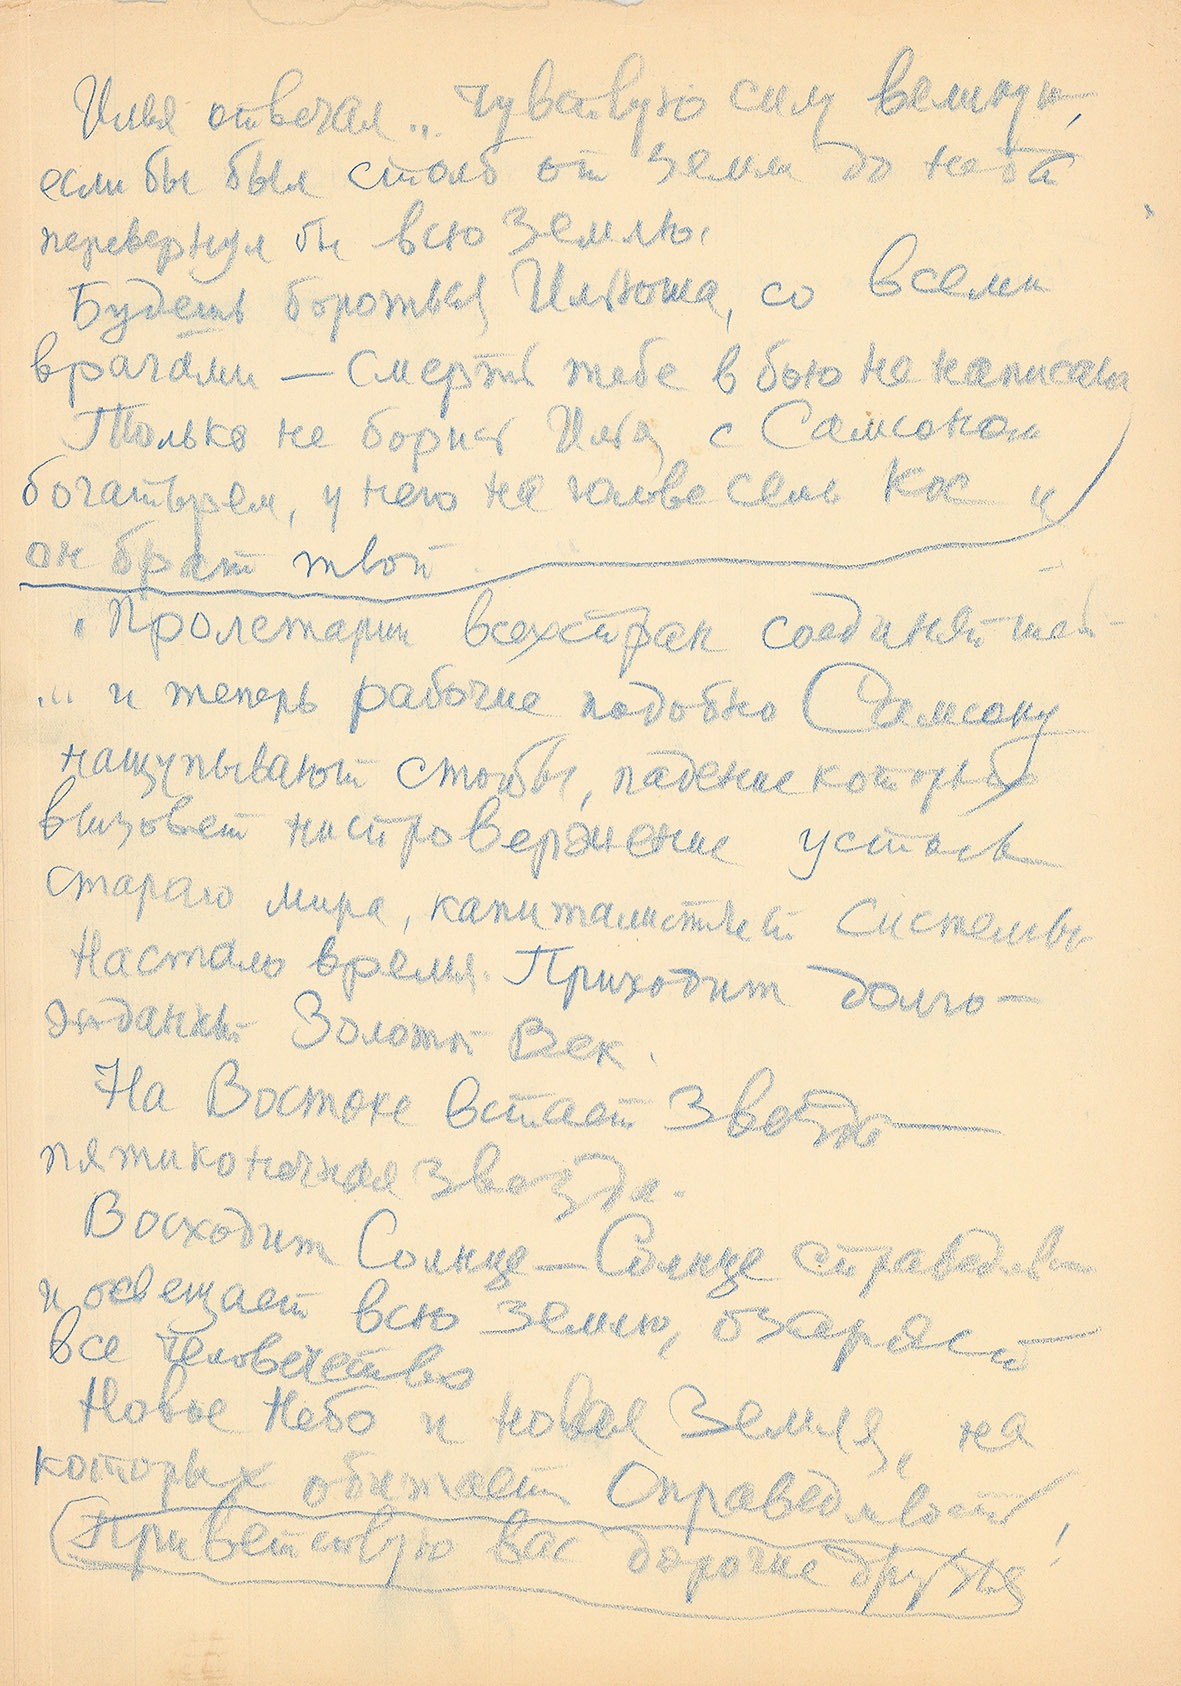 Илья отвечал .. чувствую силу великую,
если бы был столб от земли до неба
перевернул бы всю Землю.
Будешь бороться Илюша, со всеми
врагами — смерть тебе в бою не написана
Только не борись Илья с Самсоном
богатырем, у него на голове семь кос и
он брат твой
"Пролетарии всех стран соединяйтесь
... и теперь рабочие подобно Самсону
нащупывают столбы, падение которых
вызовет ниспровержение устоев
стараго мира, капиталистич. системы
Настало время. Приходит долго-
жданный Золотой Век.
На Востоке встает Звезда —
пятиконечная звезда.
Восходит Солнце — Солнце справедлив
и освещает всю Землю, озаряет
все человечество
Новое Небо и новая Земля, на
которых обитает Справедливость!
Приветствую вас дорогие друзья